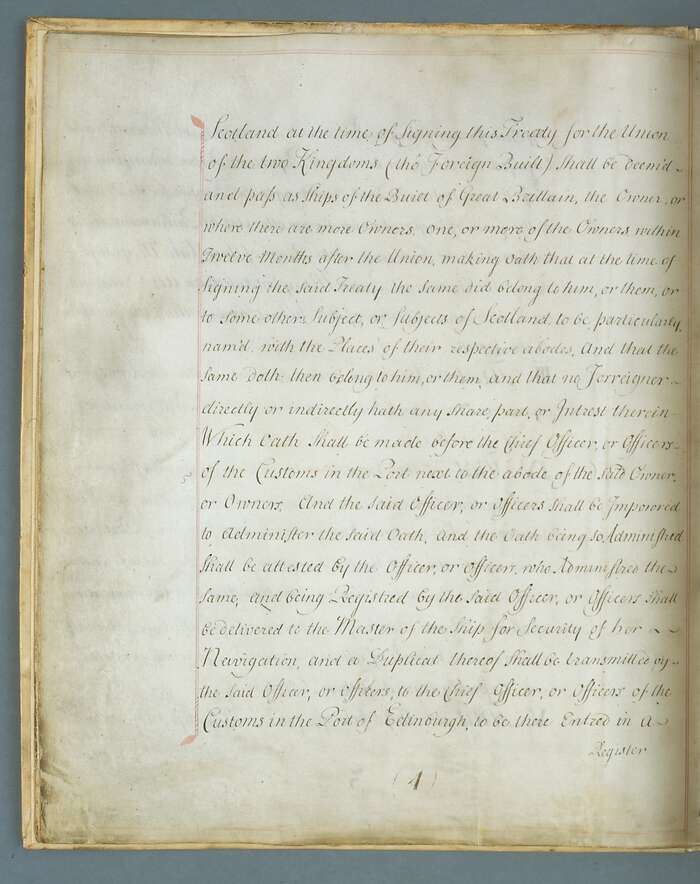 Scotland at the time of Signing this Treaty for the Union
of the two Kingdoms (tho' Foreign Built) shall be deem'd
and pass as ships of the Built of Great Brittain, the Owner, or
where there are more Owners, one, or more of the Owners within
Twelve Months after the Union, making oath that at the time of
Signing the said Treaty the same did belong to him, or them, or
to some other Subject, or Subjects of Scotland, to be particularly
nam'd, with the Places of their respective abodes, And that the
same doth then belong to him, or them, and that no Forreigner
directly or indirectly hath any share, part, or Intrest therein
Which Oath shall be made before the Chief Officer, or Officers
of the Customs in the Port next to the abode of the said Owner,
or Owners, And the said Officer, or Officers shall be Impowred
to Administer the said Oath, And the Oath being so Administred
shall be attested by the Officer, or Officers, who Administred the
same, and being Registred by the said Officer, or Officers shall
be delivered to the Master of the ship for Security of her
Navigation, and a Duplicat thereof shall be transmitted by
the said Officer, or Officers, to the Chief Officer, or Officers of the
Customs in the Port of Edinburgh, to be there Entred in a
Register
(4)
5